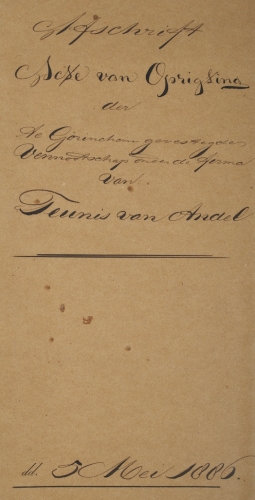 Afschrift
Acte van Oprigting
der
te Gorinchem gevestigde
Vennootschap onder de firma
van
Teunis van Andel
dd. 5 Mei 1886.